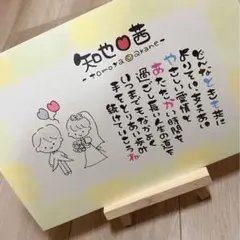 知也 茜
-tomoya akane-
どんなときも共に
よりそい支えあい
やさしい愛情と
あたたかい時間を
過ごし長い人生の道を
いつまでもなかよく
手をとりあい歩み
続けていこうね